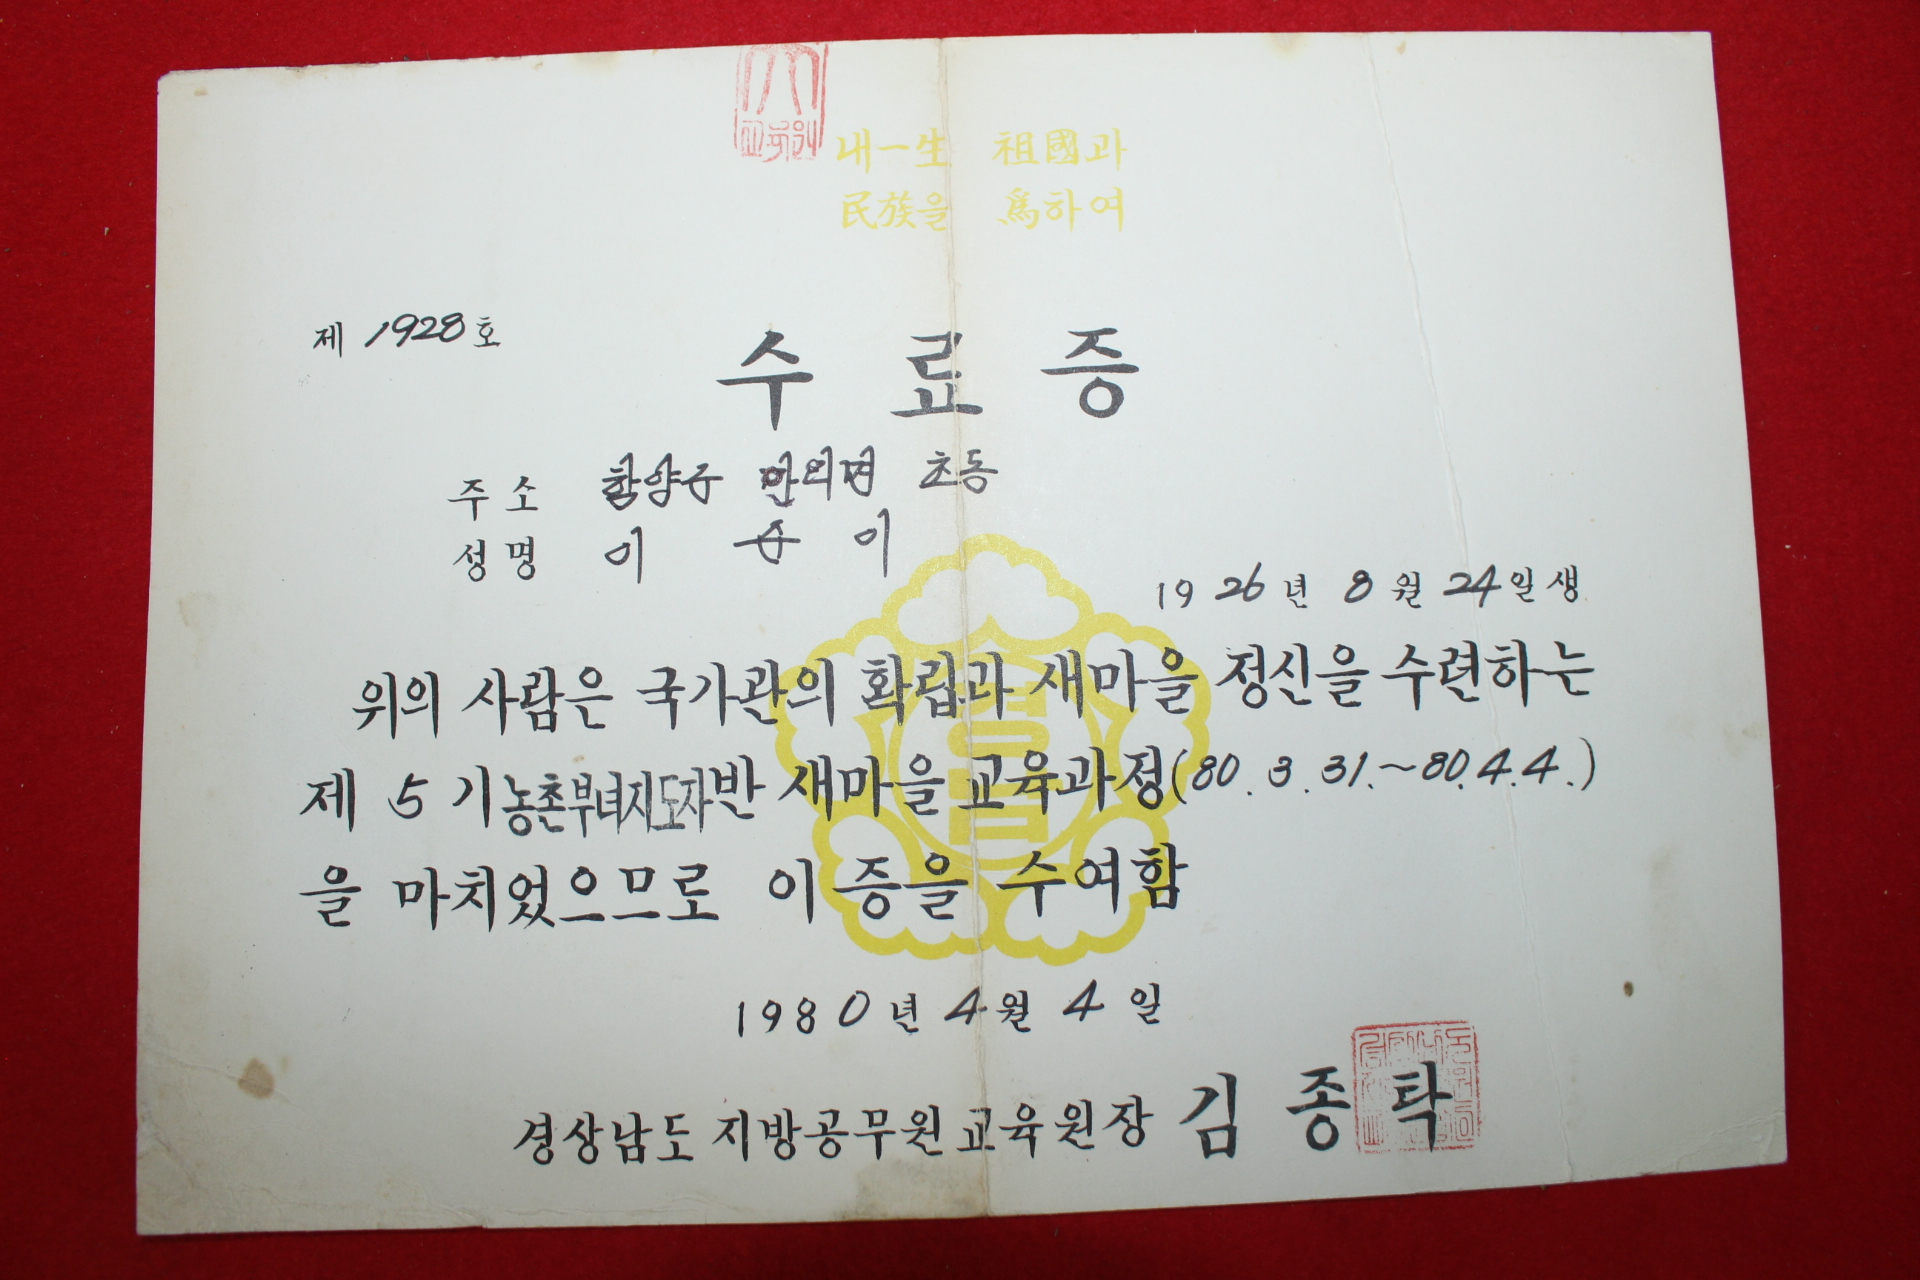 내一生 祖國과
民族을 爲하여
제 1928 호
수료증
주소 함양군 안의면 초동
성명 이 순 이
1926년 8월 24일생
위의 사람은 국가관의 확립과 새마을 정신을 수련하는
제 5 기 농촌부녀지도자반 새마을 교육과정(80. 3. 31.~80. 4. 4.)
을 마치었으므로 이 증을 수여함
1980년 4월 4일
경상남도 지방공무원교육원장 김종탁